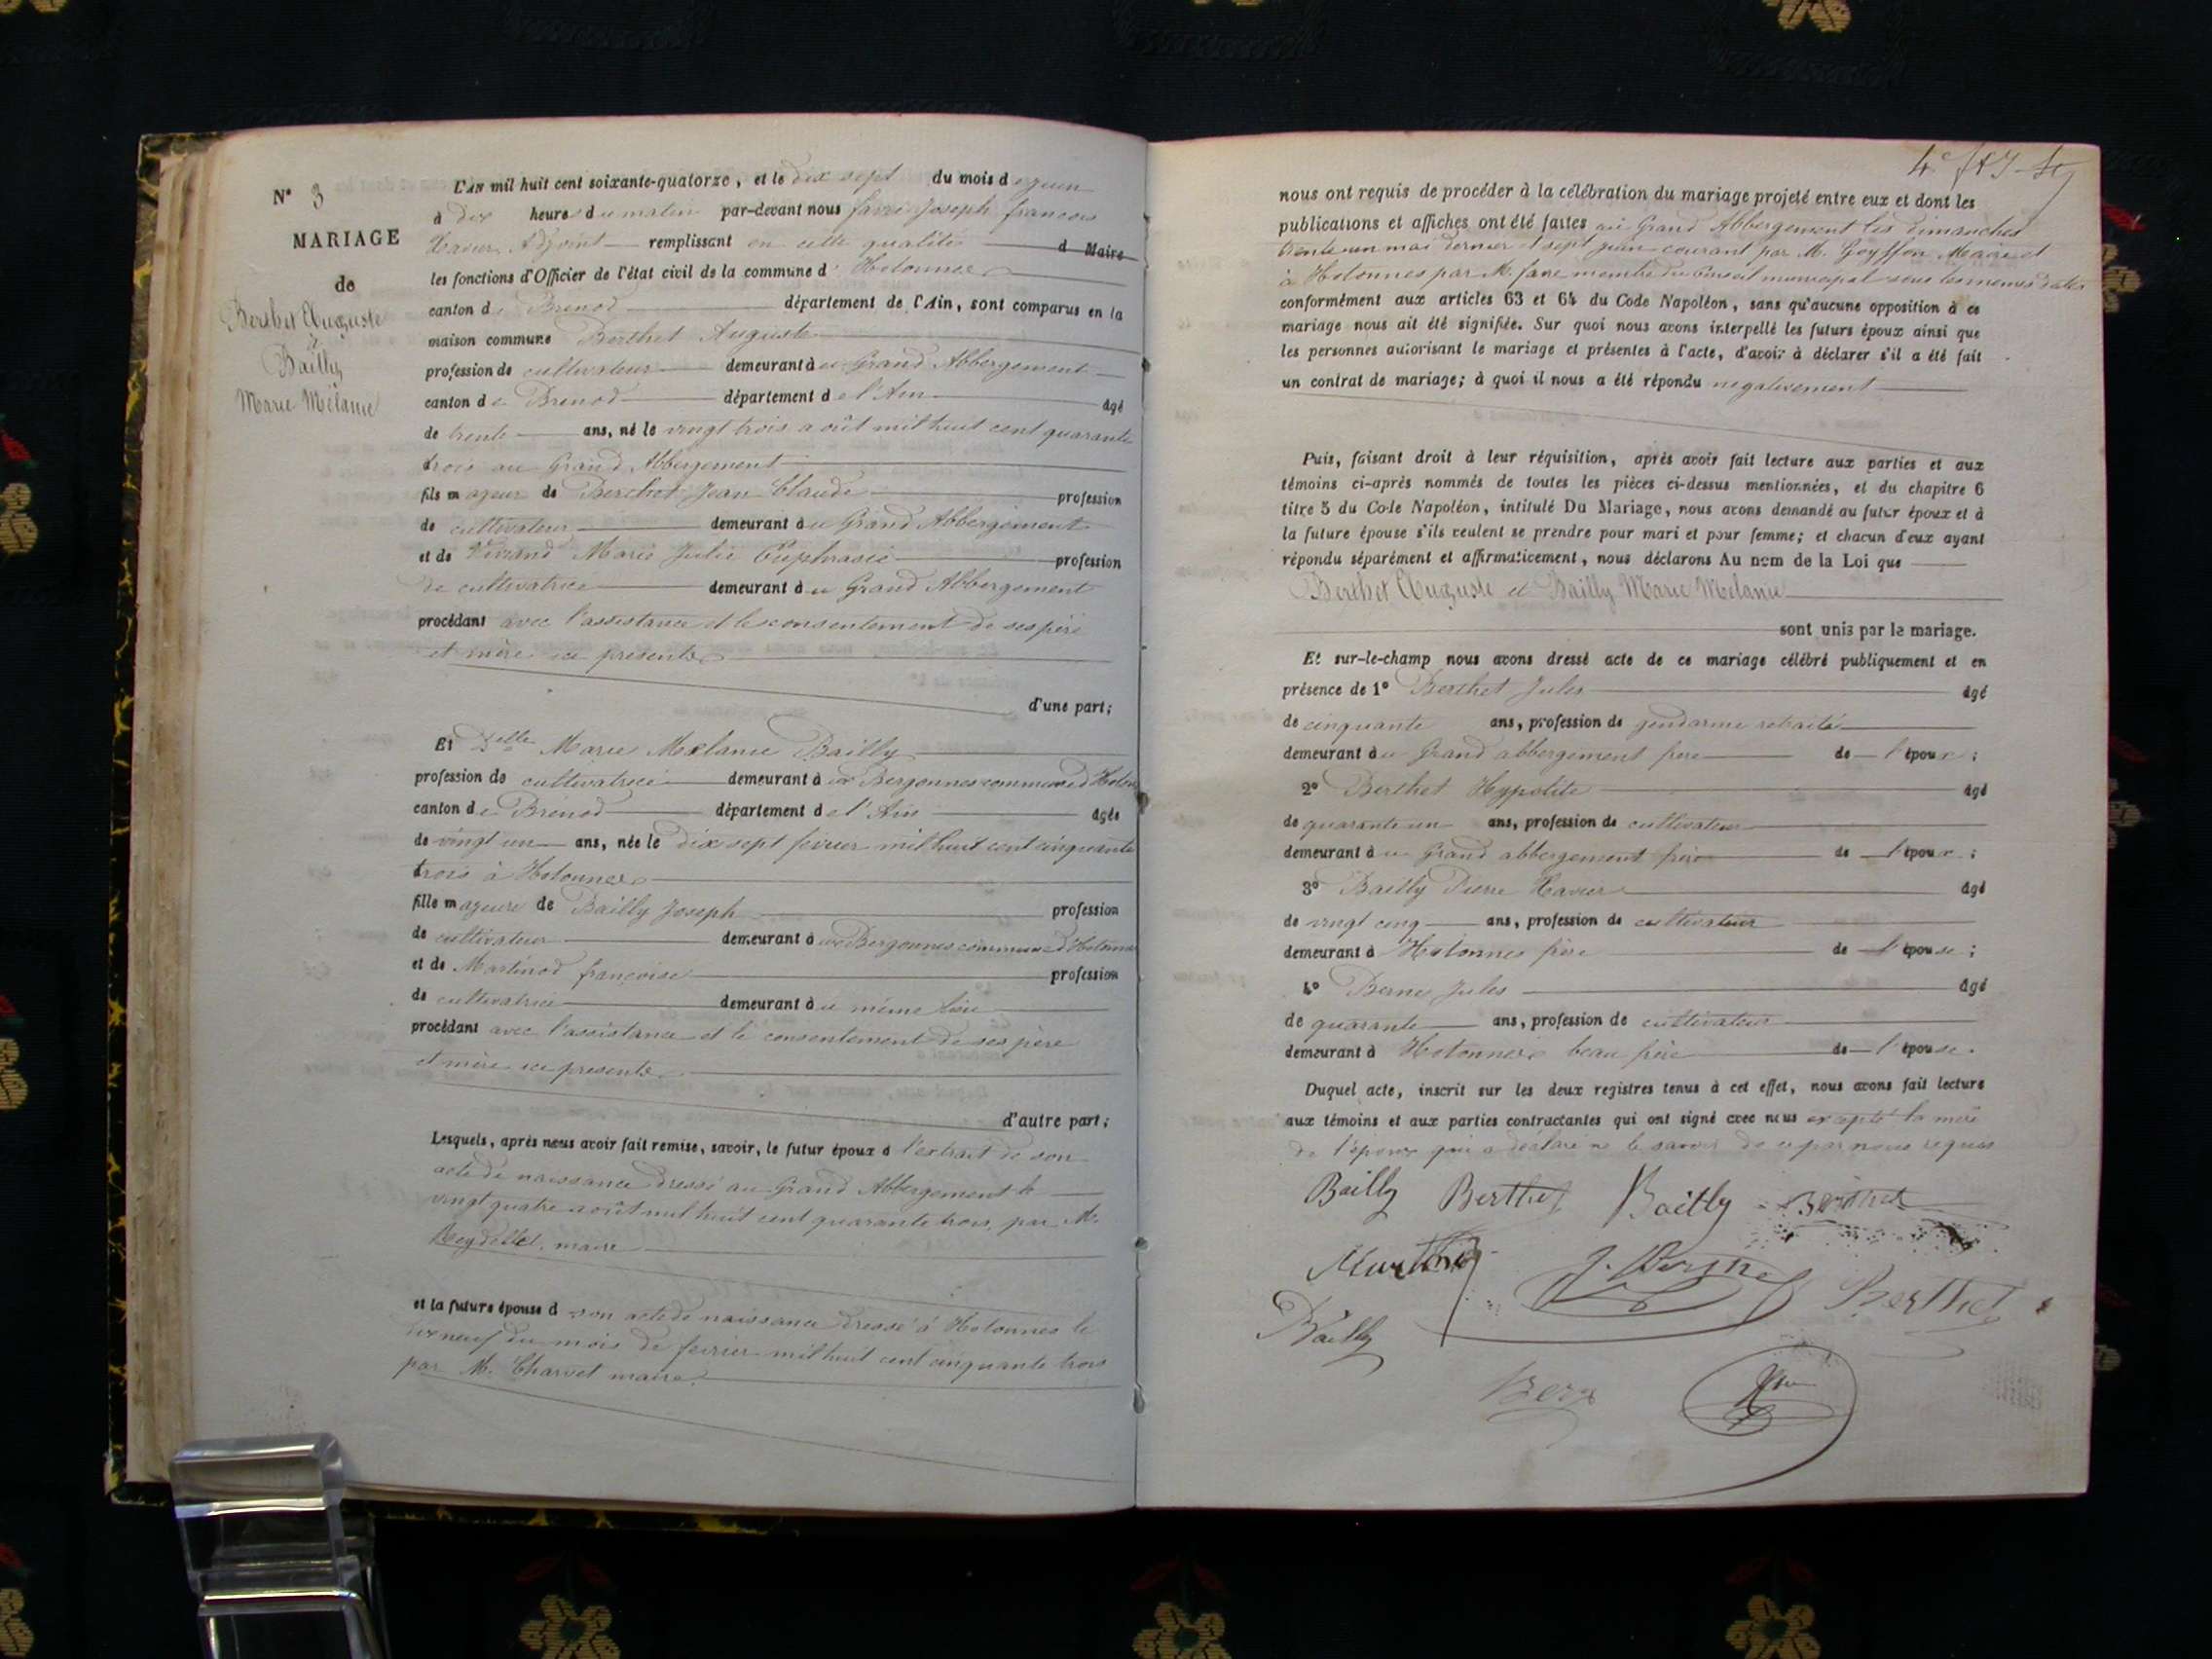 N° 3
MARIAGE
de
Berthet Auguste
&
Bailly
Marie Mélanie
L'An mil huit cent soixante-quatorze, et le dix sept du mois de juin
à dix heures du matin par-devant nous favre Joseph francois
Xavier Adjoint remplissant en cette qualité d Maire
les fonctions d'Officier de l'état civil de la commune d'Hotonnes
canton de Brenod département de l'Ain, sont comparus en la
maison commune Berthet Auguste
profession de cultivateur demeurant au Grand Abbergement
canton de Brenod département de l'Ain âgé
de trente ans, né le vingt trois août mil huit cent quarante
trois au Grand Abbergement
fils majeur de Berthet Jean Claude profession
de cultivateur demeurant àu Grand Abbergement
et de Marie Julie Euphrasie profession
de cultivatrice demeurant àu Grand Abbergement
procédant avec l'assistance et le consentement de ses père
et mère ici presents
d'une part;
Et Delle Marie Melanie Bailly
profession de cultivatrice demeurant à ux Bergonnes commune d'Hoton
canton de Brenod département de l'Ain âgée
de vingt un ans, née le dix sept fevrier mil huit cent cinquante
trois à Hotonnes
fille majeure de Bailly Joseph profession
de cultivateur demeurant à ux Bergonnes commune d'Hotonnes
et de Martinod françoise profession
de cultivatrice demeurant àu même lieu
procédant avec l'assistance et le consentement de ses père
et mère ici presents
d'autre part;
Lesquels, après nous avoir fait remise, savoir, le futur époux d l'extrait de son
acte de naissance dressé au Grand Abbergement le
vingt quatre août mil huit cent quarante trois, par M.
Reydellet, maire
et la future épouse d son acte de naissance dressé à Hotonnes le
dix neuf du mois de fevrier mil huit cent cinquante trois
par M. Charvet maire.
4e
nous ont requis de procéder à la célébration du mariage projeté entre eux et dont les
publications et affiches ont été faites au Grand Abbergement les dimanches
trente un mai dernier et sept juin courant par M. Goyffon Maire et
à Hotonnes par M. favre membre du Conseil municipal sous les mêmes dates
conformément aux articles 63 et 64 du Code Napoléon, sans qu'aucune opposition à ce
mariage nous ait été signifiée. Sur quoi nous avons interpellé les futurs époux ainsi que
les personnes autorisant le mariage et présentes à l'acte, d'avoir à déclarer s'il a été fait
un contrat de mariage; à quoi il nous a été répondu negativement
Puis, faisant droit à leur réquisition, après avoir fait lecture aux parties et aux
témoins ci-après nommés de toutes les pièces ci-dessus mentionnées, et du chapitre 6
titre 5 du Code Napoléon, intitulé Du Mariage, nous avons demandé au futur époux et à
la future épouse s'ils veulent se prendre pour mari et pour femme; et chacun d'eux ayant
répondu séparément et affirmativement, nous déclarons Au nom de la Loi que
Berthet Auguste et Bailly Marie Melanie
sont unis par le mariage.
Et sur-le-champ nous avons dressé acte de ce mariage célébré publiquement et en
présence de 1° Berthet Jules âgé
de cinquante ans, profession de gendarme retraité
demeurant àu Grand abbergement frère de l'époux;
2° Berthet Hypolite âgé
de quarante un ans, profession de cultivateur
demeurant àu Grand abbergement frère de l'époux;
3° Bailly Pierre Xavier âgé
de vingt cinq ans, profession de cultivateur
demeurant à Hotonnes frère de l'épouse;
4° Berne Jules âgé
de quarante ans, profession de cultivateur
demeurant à Hotonnes beau frère de l'épouse.
Duquel acte, inscrit sur les deux registres tenus à cet effet, nous avons fait lecture
aux témoins et aux parties contractantes qui ont signé avec nous excepté la mère
de l'époux qui a déclaré ne le savoir de ce par nous requis
Bailly Berthet Bailly Berthet
Berthet
Bailly